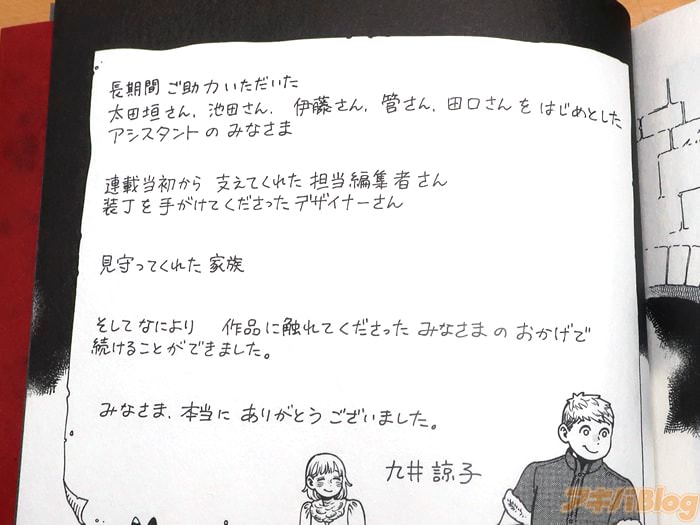 長期間ご助力いただいた
太田垣さん, 池田さん, 伊藤さん, 管さん, 田口さんをはじめとした
アシスタントのみなさま
連載当初から 支えてくれた 担当編集者さん
装丁を手がけてくださったデザイナーさん
見守ってくれた 家族
そしてなにより 作品に触れてくださった みなさまの おかげで
続けることができました。
みなさま、本当に ありがとうございました。
九井諒子
アキバBlog